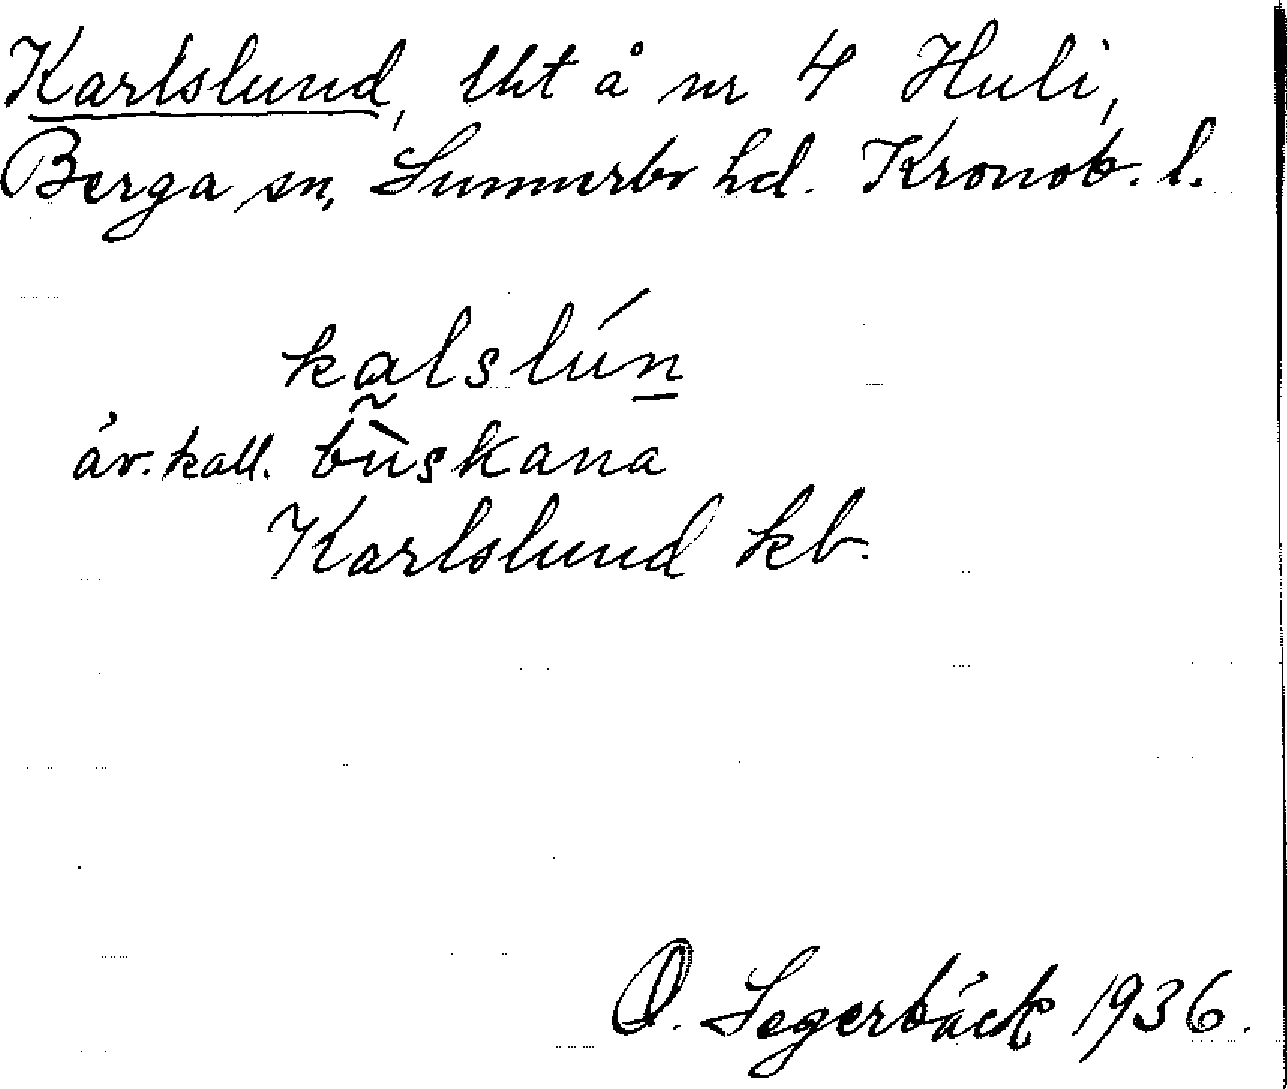 Karlslund, lht å nr 4 Huli,
Berga sn, Sunnerbo hd. Kronob. l.
kalslún
äv. kall. bùskana
Karlslund kb.
O. Segerbäck 1936.